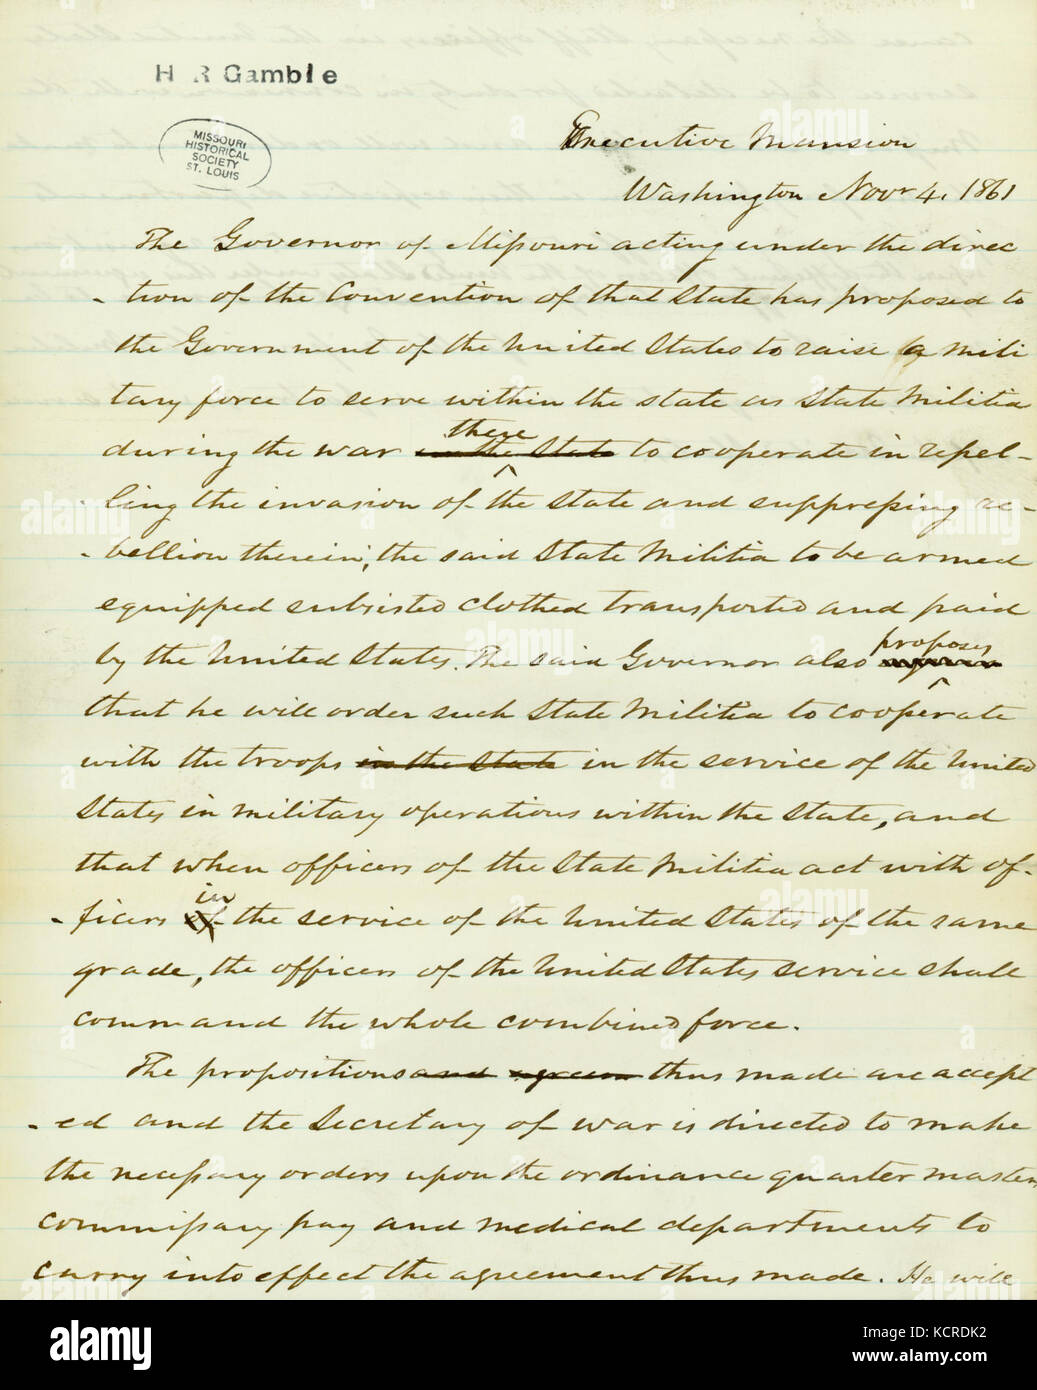 H R Gamble
MISSOURI
HISTORICAL
SOCIETY
ST. LOUIS
Executive Mansion
Washington Novr 4. 1861
The Governor of Missouri acting under the direc
- tion of the Convention of that State has proposed to
the Government of the United States to raise a mili
tary force to serve within the state as State Militia
there
during the war in the State to cooperate in repel-
ling the invasion of the State and suppressing re-
- bellion therein; the said State Militia to be armed
equipped subsisted clothed transported and paid
proposes
by the United States. The said Governor also
that he will order such State Militia to cooperate
with the troops in the State in the service of the United
States in military operations within the State, and
that when officers of the State Militia act with of-
in
- ficers of the service of the United States of the same
grade, the officers of the United States service shall
command the whole combined force.
The propositions and agreem thus made are accept
- ed and the Secretary of war is directed to make
the necessary orders upon the ordinance quarter masters
commissary pay and medical departments to
carry into effect the agreement thus made. He will
alamy
Image ID: KCRDK2
www.alamy.com